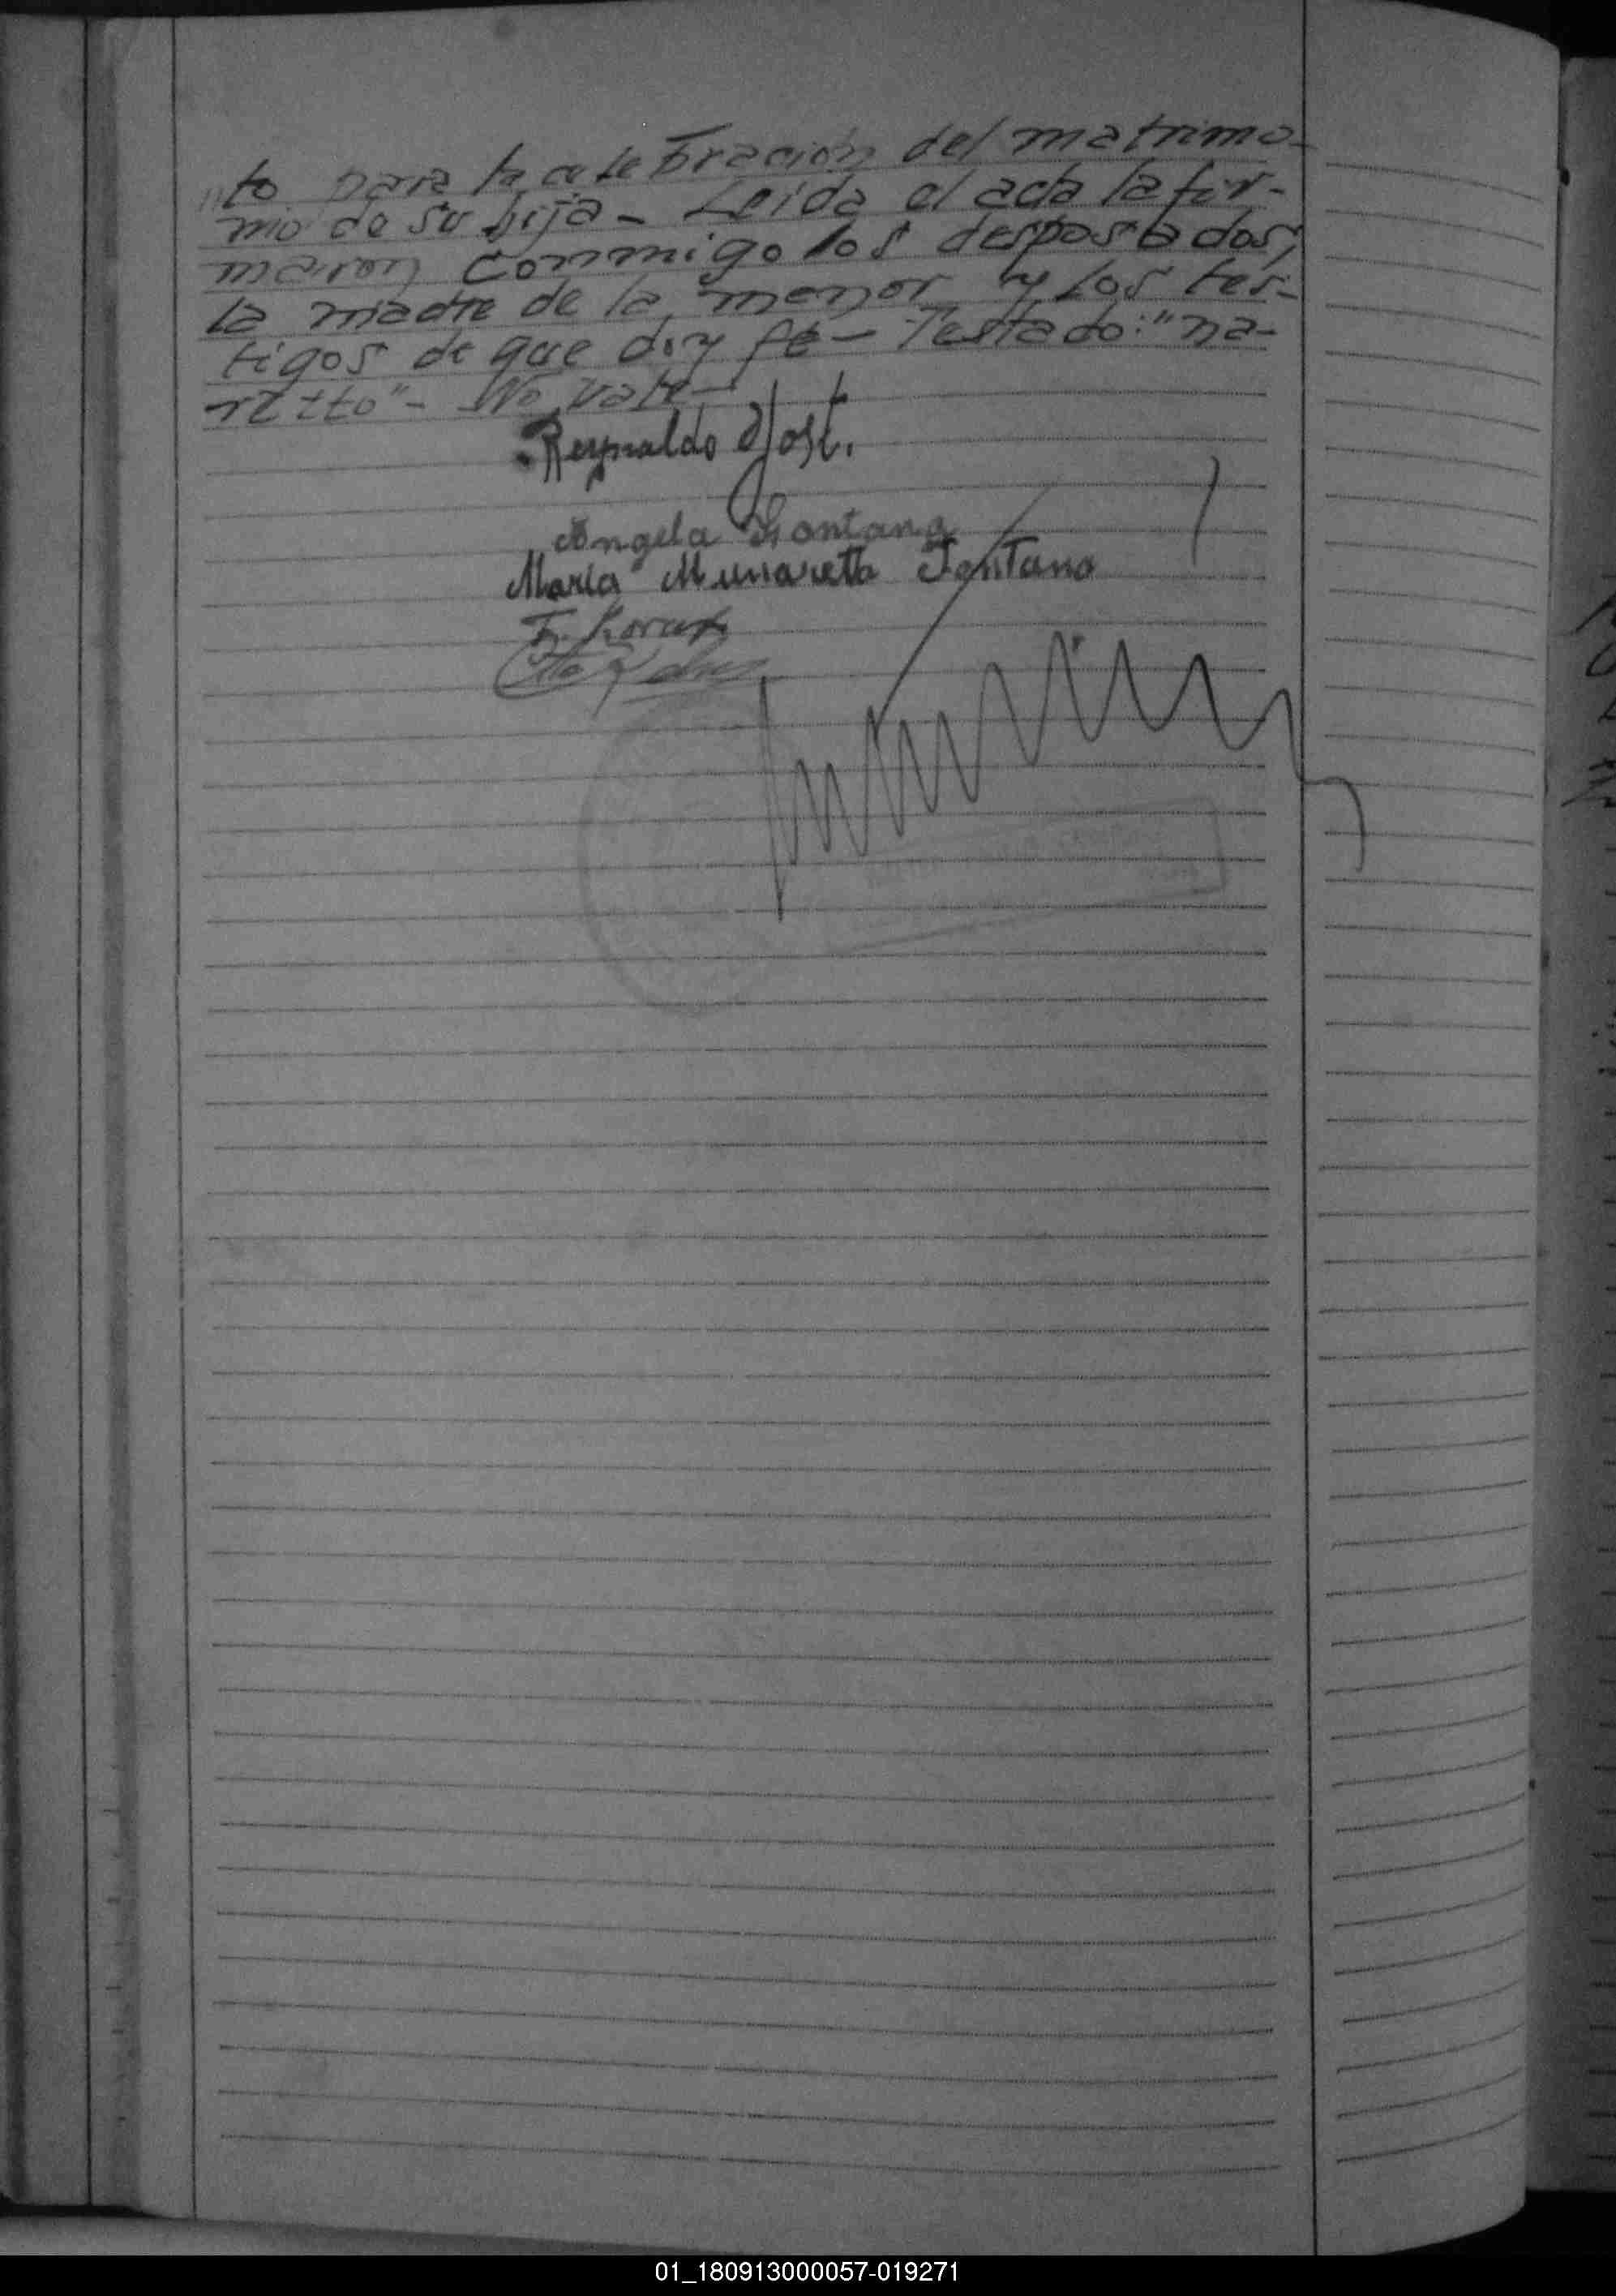 "to para la celebración del matrimo-
nio de su hija - Leida el acta la fir-
maron conmigo los desposados,
la madre de la menor y los tes-
tigos de que doy fe - Testado: "na-
retto" - No vale -
Reynaldo Yost.
Angela Fontana
Maria Munaretto Fontana
01_180913000057-019271